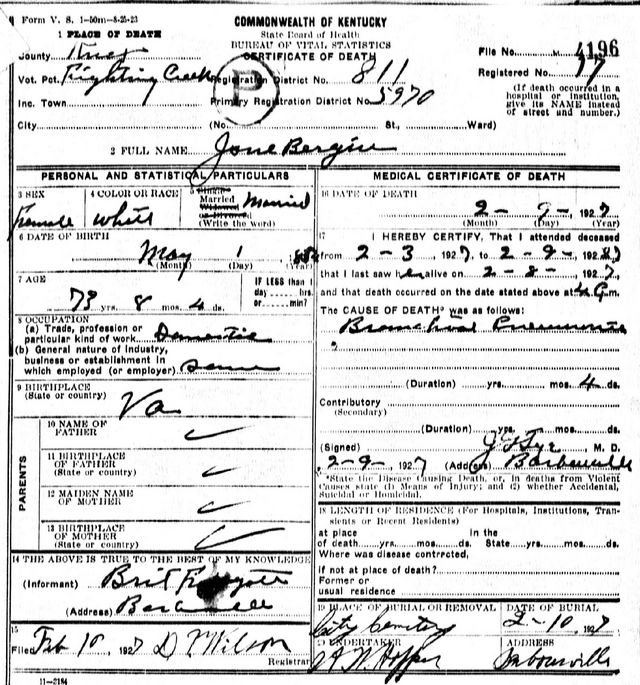 Form V. S. 1-50m-8-25-23
COMMONWEALTH OF KENTUCKY
State Board of Health
BUREAU OF VITAL STATISTICS
CERTIFICATE OF DEATH
1 PLACE OF DEATH
County Knox
Vot. Pct. Fighting Creek Registration District No. 811
Inc. Town Primary Registration District No. 5970
P
City (No. St., Ward)
File No. 4196
Registered No. 17
(If death occurred in a hospital or institution, give its NAME instead of street and number.)
2 FULL NAME Jane Bergin
PERSONAL AND STATISTICAL PARTICULARS
3 SEX Female
4 COLOR OR RACE White
5 Single Married Widowed or Divorced (Write the word) Married
6 DATE OF BIRTH May 1
(Month) (Day) (Year)
7 AGE 73 yrs. 8 mos. 4 ds.
IF LESS than 1 day hrs. or min?
8 OCCUPATION
(a) Trade, profession or particular kind of work Domestic
(b) General nature of industry, business or establishment in which employed (or employer) Same
9 BIRTHPLACE (State or country) Va
PARENTS
10 NAME OF FATHER ✓
11 BIRTHPLACE OF FATHER (State or country) ✓
12 MAIDEN NAME OF MOTHER ✓
13 BIRTHPLACE OF MOTHER (State or country) ✓
14 THE ABOVE IS TRUE TO THE BEST OF MY KNOWLEDGE
(Informant) Brit
(Address)
15
Filed Feb 10 1927 D Wilson
Registrar
11-2184
MEDICAL CERTIFICATE OF DEATH
16 DATE OF DEATH 2-9-, 1927
(Month) (Day) (Year)
17 I HEREBY CERTIFY, That I attended deceased
from 2-3, 1927, to 2-9-, 1927,
that I last saw her alive on 2-8-, 1927,
and that death occurred on the date stated above at 4 m.
The CAUSE OF DEATH* was as follows:
Bronchial Pneumonia
(Duration) yrs. mos. 4 ds.
Contributory
(Secondary)
(Duration) yrs. mos. ds.
(Signed) M. D.
2-9-, 1927 (Address) Barbourville
*State the Disease Causing Death, or, in deaths from Violent Causes state (1) Means of Injury; and (2) whether Accidental, Suicidal or Homicidal.
18 LENGTH OF RESIDENCE (For Hospitals, Institutions, Transients or Recent Residents)
at place of death yrs. mos. ds. In the State yrs. mos. ds.
Where was disease contracted,
if not at place of death?
Former or usual residence
19 PLACE OF BURIAL OR REMOVAL City Cemetery
DATE OF BURIAL 2-10, 1927
20 UNDERTAKER Hopper
ADDRESS Barbourville